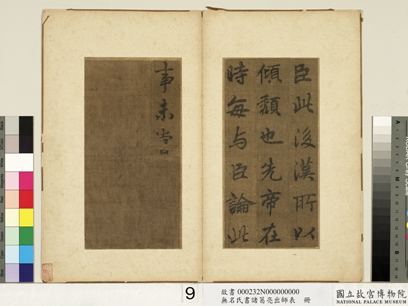 臣此後漢所以
傾頹也先帝在
時每与臣論此
事未嘗
9
故書 000232N000000000
無名氏書諸葛亮出師表 冊
國立故宮博物院
NATIONAL PALACE MUSEUM